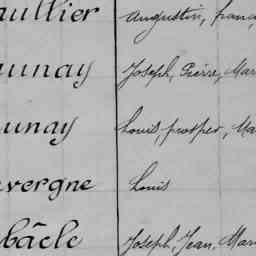 aullier Augustin, franç
aunay Joseph, Pierre, Mar
unay Louis, prosper, Ma
vergne Louis
bâcle Joseph, Jean, Mari